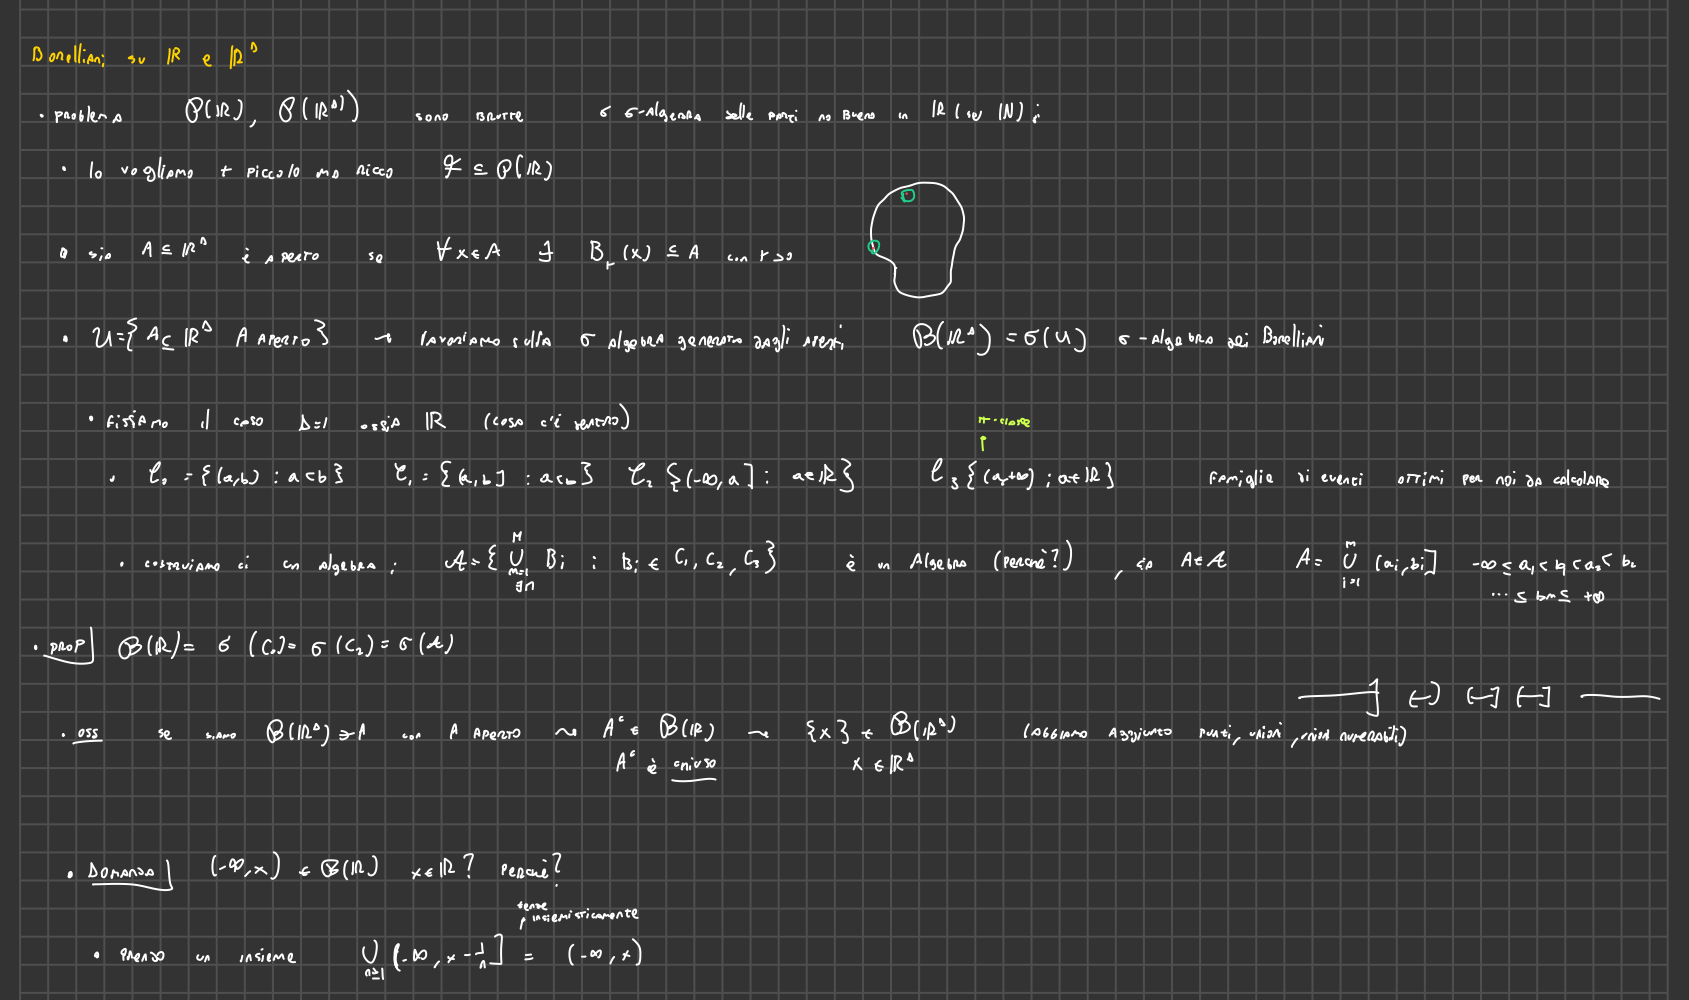 Borelliani su ℝ e ℝᵈ
• problema P(ℝ), P(ℝᵈ) sono brutte σ σ-algebra delle parti no buono in ℝ (su ℕ) ;
• lo vogliamo + piccolo ma ricco F ⊆ P(ℝ)
• sia A ⊆ ℝᵈ è aperto se ∀ x ∈ A ∃ B_r(x) ⊆ A con r > 0
• U = { A ⊆ ℝᵈ A aperto } → lavoriamo sulla σ algebra generata dagli aperti B(ℝᵈ) = σ(U) σ-algebra dei Borelliani
• fissiamo il caso d=1 ossia ℝ (cosa c'è dentro)
π-classe
• C₀ = {(a,b) : a<b} C₁ = {(a,b] : a<b} C₂ {(-∞,a] : a∈ℝ} C₃ {(a,+∞) ; a∈ℝ} famiglie di eventi ottimi per noi da calcolare
• costruiamo ci un algebra ; A = { ⋃ᴹₘ₌₁ Bᵢ : Bᵢ ∈ C₁, C₂, C₃ } è un Algebra (perché?) , sia A∈A A = ⋃ᵐᵢ₌₁ (aᵢ,bᵢ] -∞ ≤ a₁ < b₁ < a₂ < b₂
∃n ... ≤ bm ≤ +∞
• prop| B(ℝ) = σ (C₀) = σ (C₂) = σ (A)
• oss se siamo B(ℝᵈ) ∋ A con A aperto ⇝ Aᶜ ∈ B(ℝ) ⇝ {x} ∈ B(ℝᵈ) (abbiamo aggiunto punti, unioni, unioni numerabili)
Aᶜ è chiuso x ∈ ℝᵈ
• Domanda| (-∞,x) ∈ B(ℝ) x∈ℝ? perché?
tende insiemisticamente
• prendo un insieme ⋃ₙ≥₁ (-∞, x - 1/n] = (-∞, x)